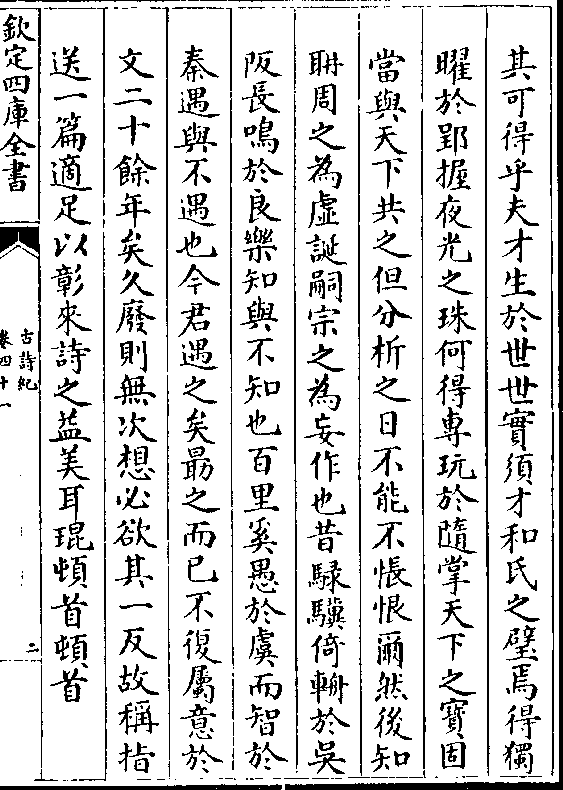 其可得乎夫才生於世世實須才和氏之璧焉得獨
曜於郢握夜光之珠何得專玩於隨掌天下之寳固
當與天下共之但分析之日不能不悵恨爾然後知
聃周之為虛誕嗣宗之為妄作也昔騄驥倚輈於吳
阪長鳴於良樂知與不知也百里奚愚於虞而智於
秦遇與不遇也今君遇之矣勗之而已不復屬意於
文二十餘年矣久廢則無次想必欲其一反故稱指
送一篇適足以彰來詩之益美耳琨頓首頓首
欽定四庫全書
古詩紀
卷四十一
二